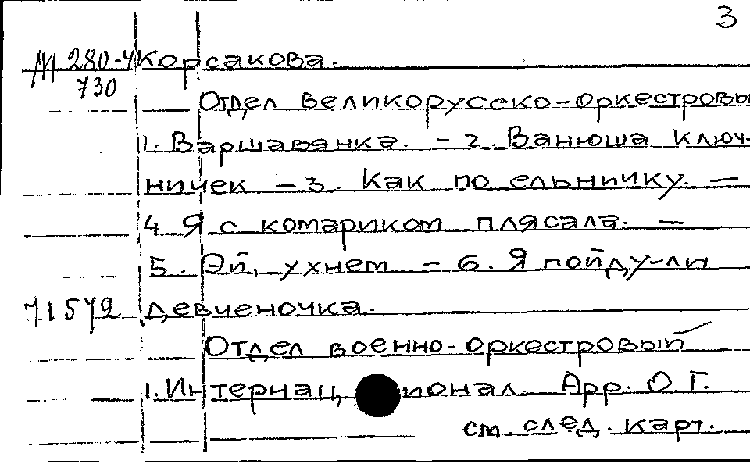 3
М 280-4 Корсакова.
730
Отдел великорусско-оркестровы
1. Варшавянка. - 2. Ванюша ключ-
ничек - 3. Как по ельничку. -
4. Я с комариком плясала. -
5. Эй, ухнем - 6. Я пойду-ли
71572 девченочка.
Отдел военно-оркестровый
1. Интернационал. Арр. О. Г.
см. след. карт.